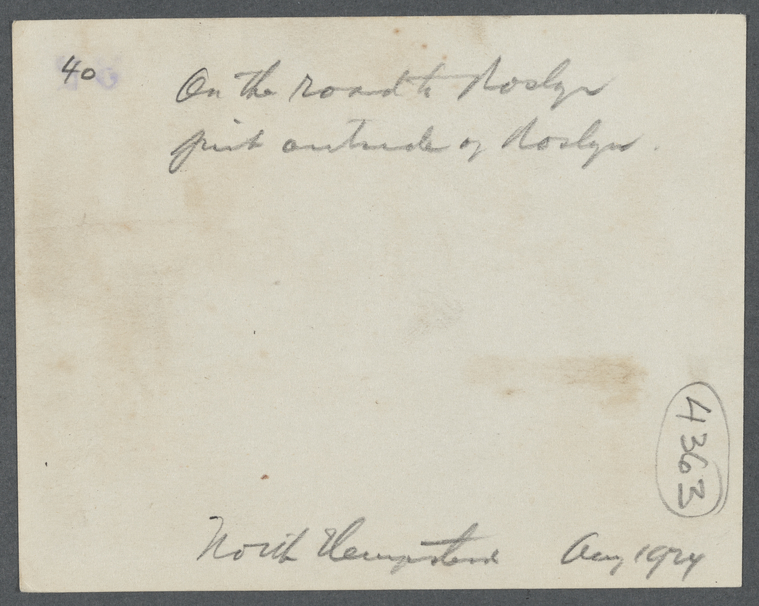 40
On the road to Roslyn
just outside of Roslyn.
4363
North Hempstead Aug 1924